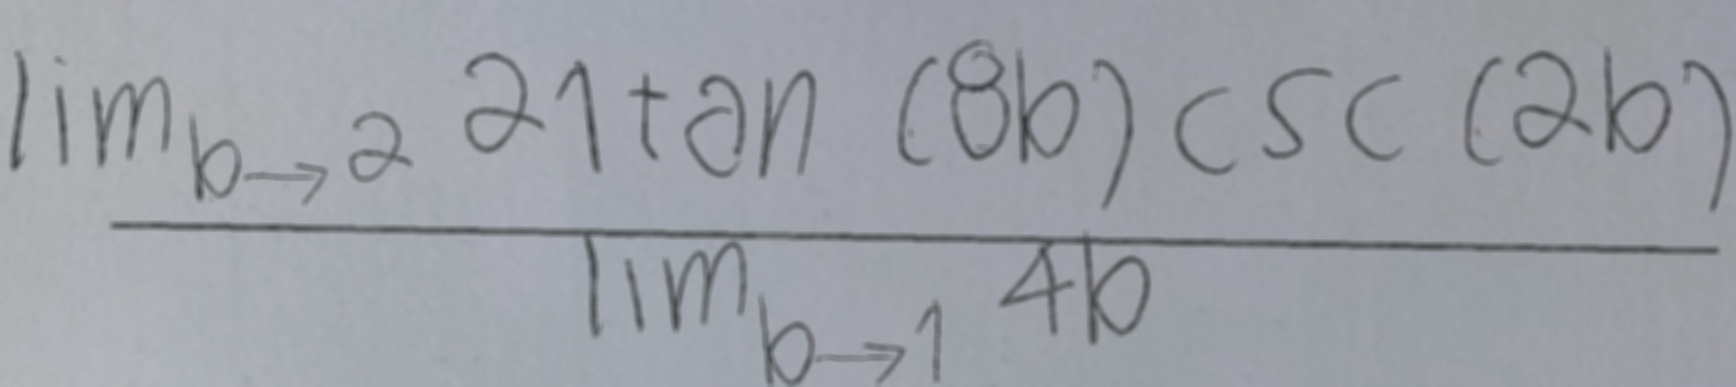 lim b→2 21tan (8b) csc (2b)
lim b→1 4b